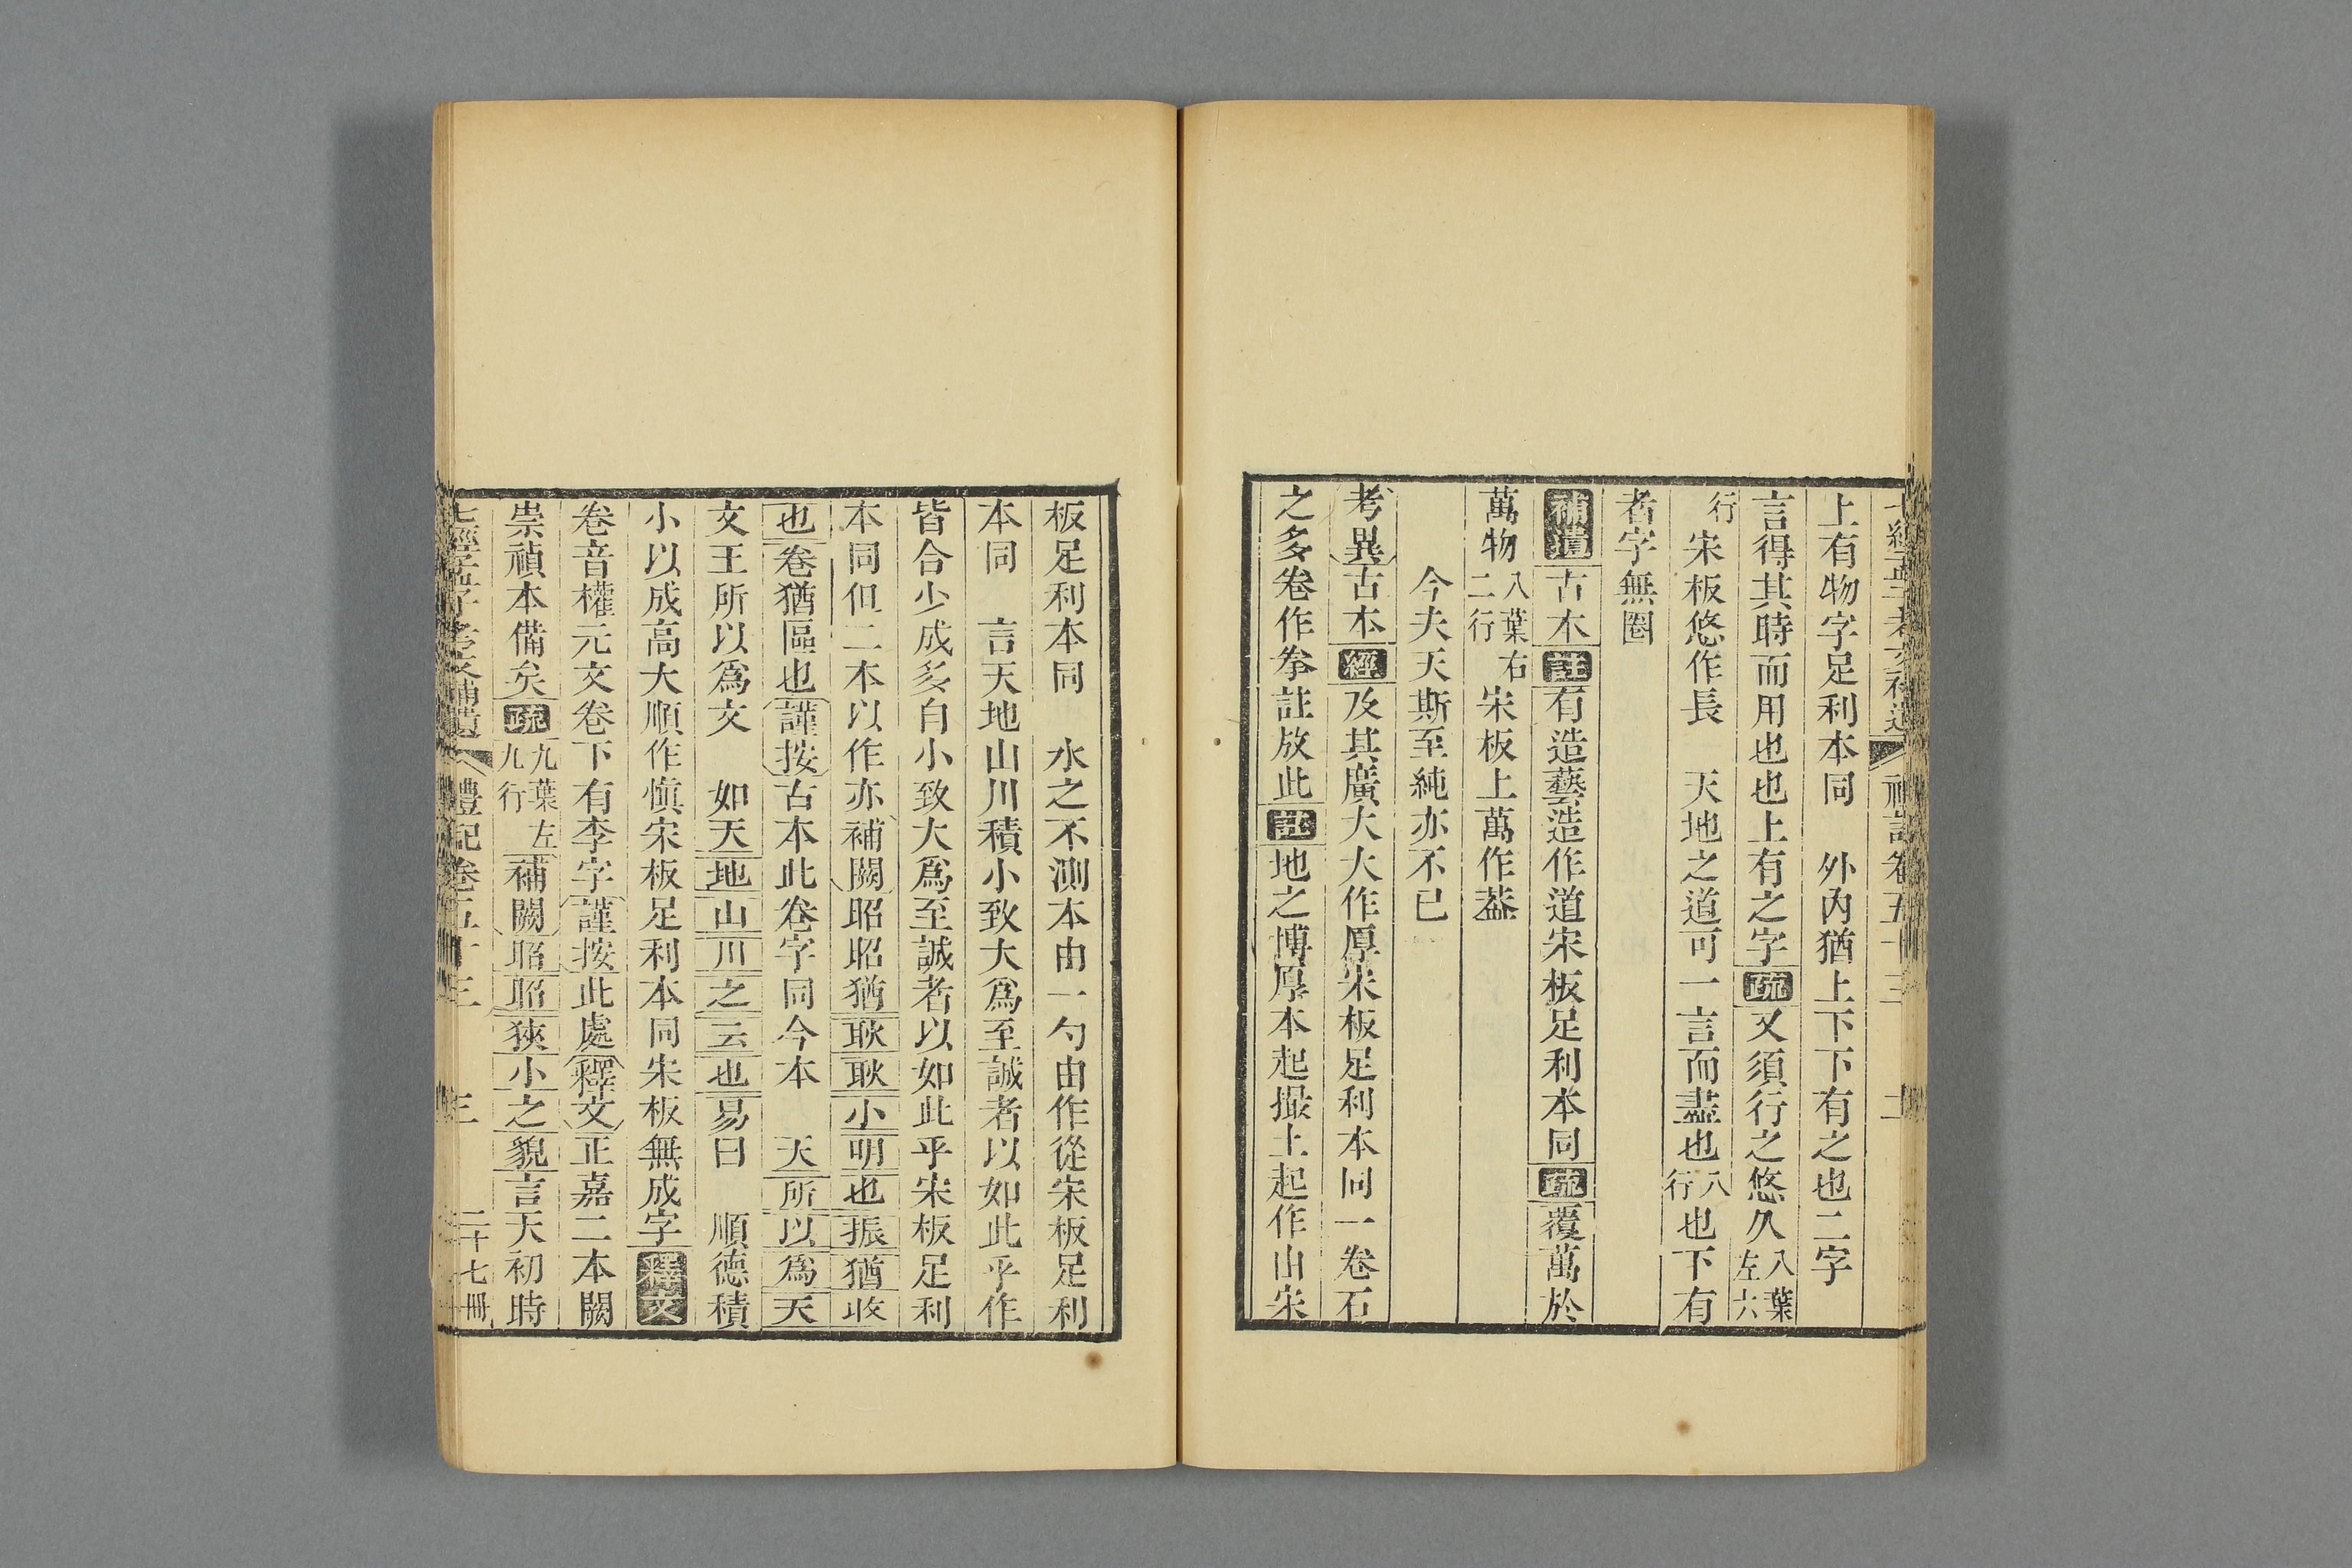 上有物字足利本同　外內猶上下下有之也二字
言得其時而用也也上有之字疏又須行之悠久八葉左六
行宋板悠作長　天地之道可一言而盡也八行也下有
者字無圈
補遺古本註有造藝造作道宋板足利本同疏覆萬於
萬物八葉右二行宋板上萬作葢
今夫天斯至純亦不已
考異古本經及其廣大大作厚宋板足利本同一卷石
之多卷作拳註放此註地之博厚本起撮土起作山宋
板足利本同　水之不測本由一勺由作從宋板足利
本同　言天地山川積小致大爲至誠者以如此乎作
皆合少成多自小致大爲至誠者以如此乎宋板足利
本同但二本以作亦補闕昭昭猶耿耿小明也振猶收
也卷猶區也謹按古本此卷字同今本　天所以爲天
文王所以爲文　如天地山川之云也易曰　順德積
小以成高大順作愼宋板足利本同宋板無成字釋文
卷音權元文卷下有李字謹按此處釋文正嘉二本闕
崇禎本備矣疏九葉左九行補闕昭昭狹小之貌言天初時
七經孟子考文補遺　禮記卷五十三　三　二十七冊